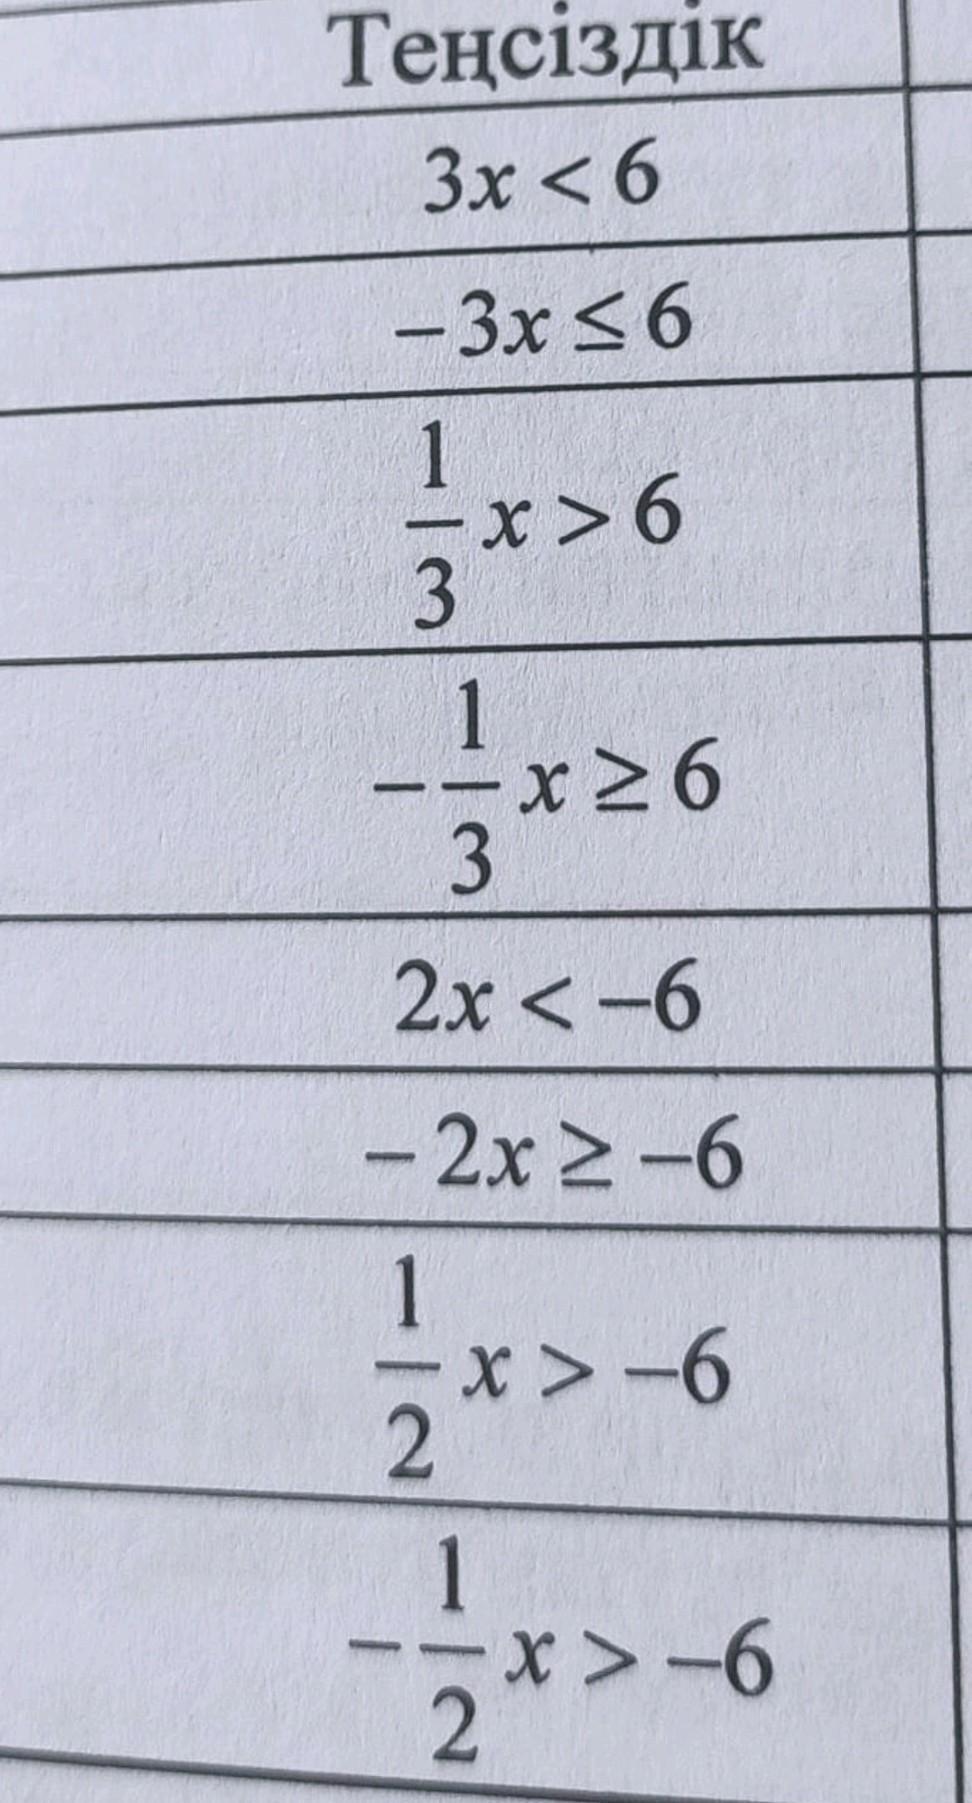 Теңсіздік
3x < 6
−3x ≤ 6
1/3 x > 6
−1/3 x ≥ 6
2x < −6
−2x ≥ −6
1/2 x > −6
−1/2 x > −6